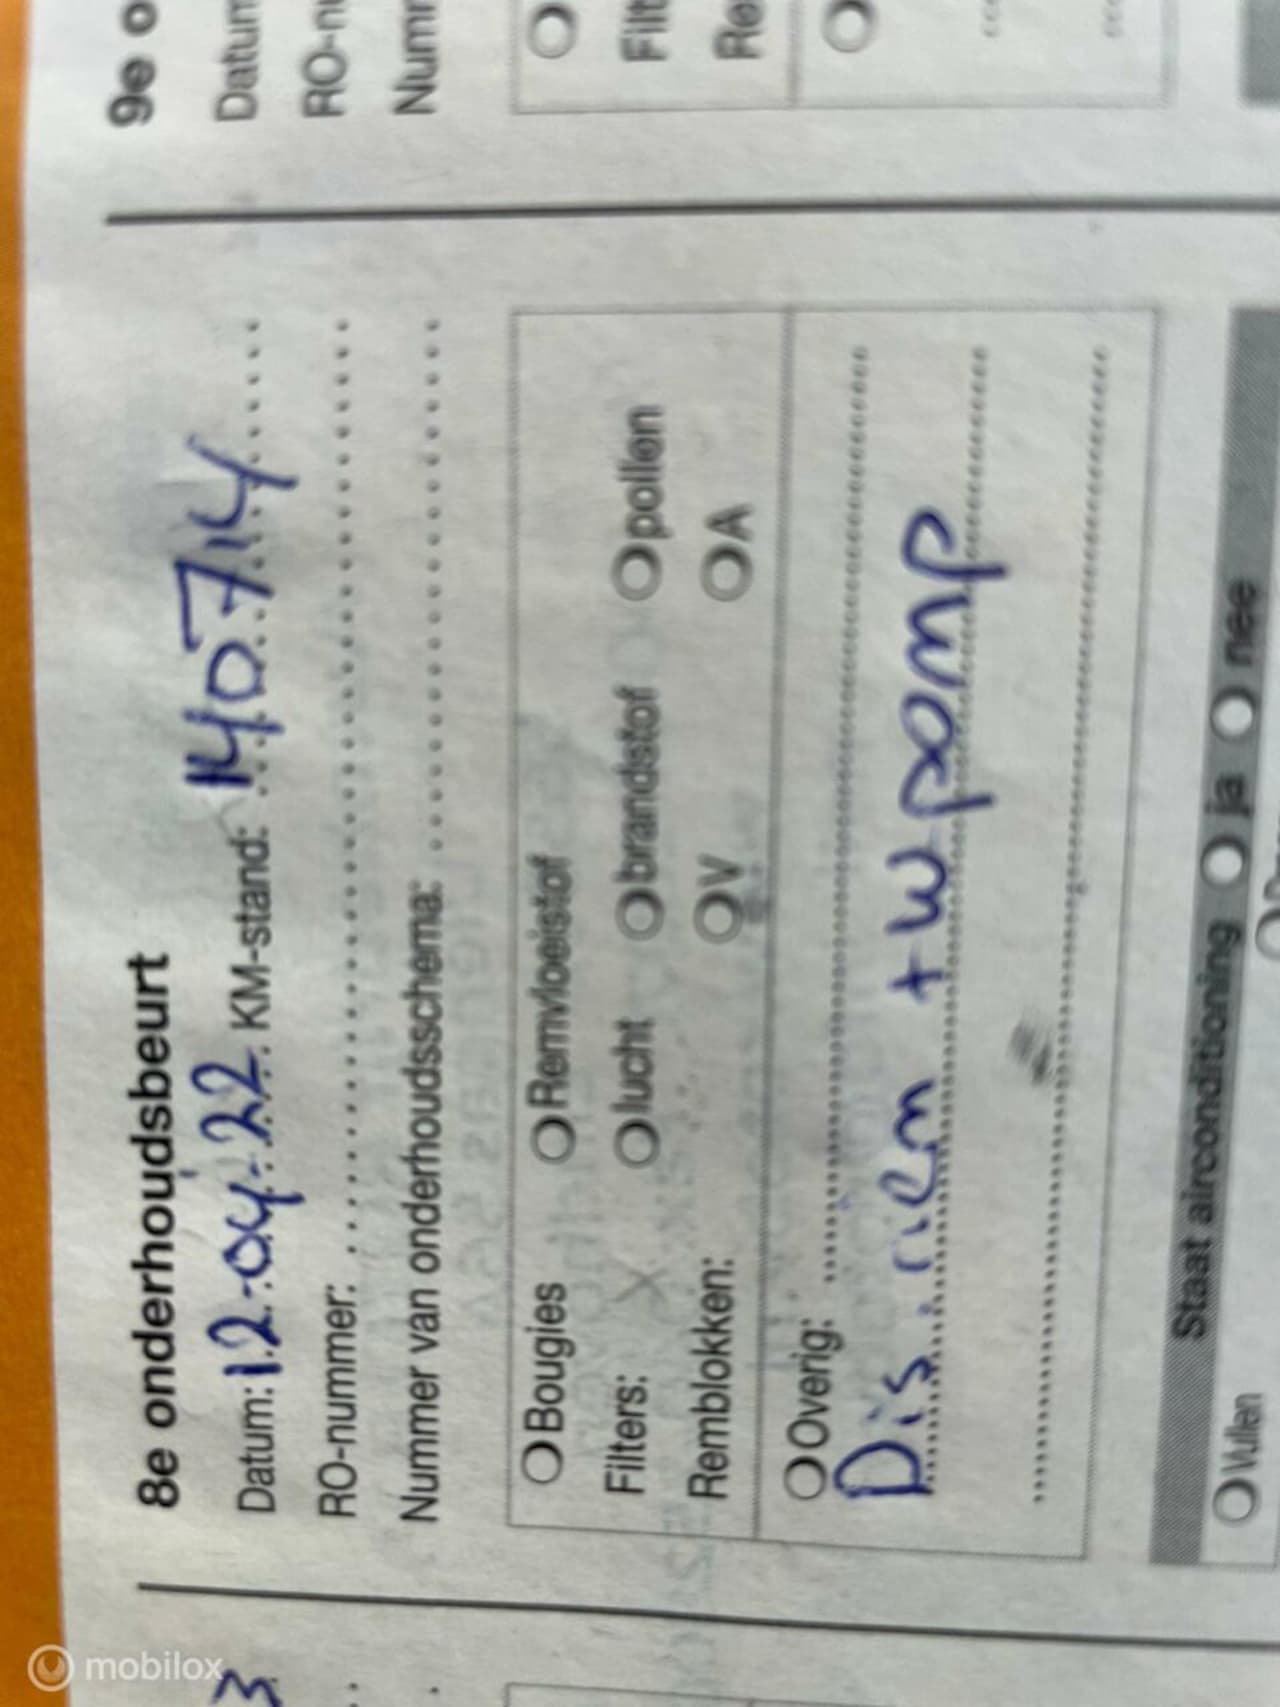 8e onderhoudsbeurt
Datum: 12-04-22 KM-stand: 140714
RO-nummer:
Nummer van onderhoudsschema:
Bougies Remvloeistof
Filters: lucht brandstof pollen
Remblokken: V A
Overig:
Dis. riem + w pomp
Staat airconditioning ja nee
Vullen
9e o
Datum
RO-nu
Numm
Filt
Re
3
mobilox